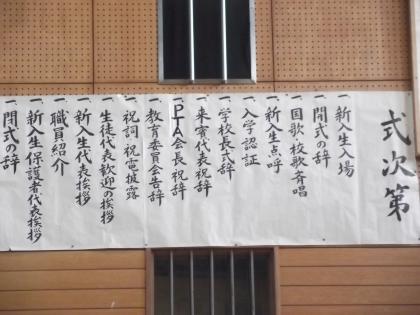 式次第
一 新入生入場
一 開式の辞
一 国歌 校歌斉唱
一 新入生点呼
一 入学認証
一 学校長式辞
一 来賓代表祝辞
一 PTA会長祝辞
一 教育委員会告辞
一 祝詞 祝電披露
一 生徒代表歓迎の挨拶
一 新入生代表挨拶
一 職員紹介
一 新入生保護者代表挨拶
一 閉式の辞